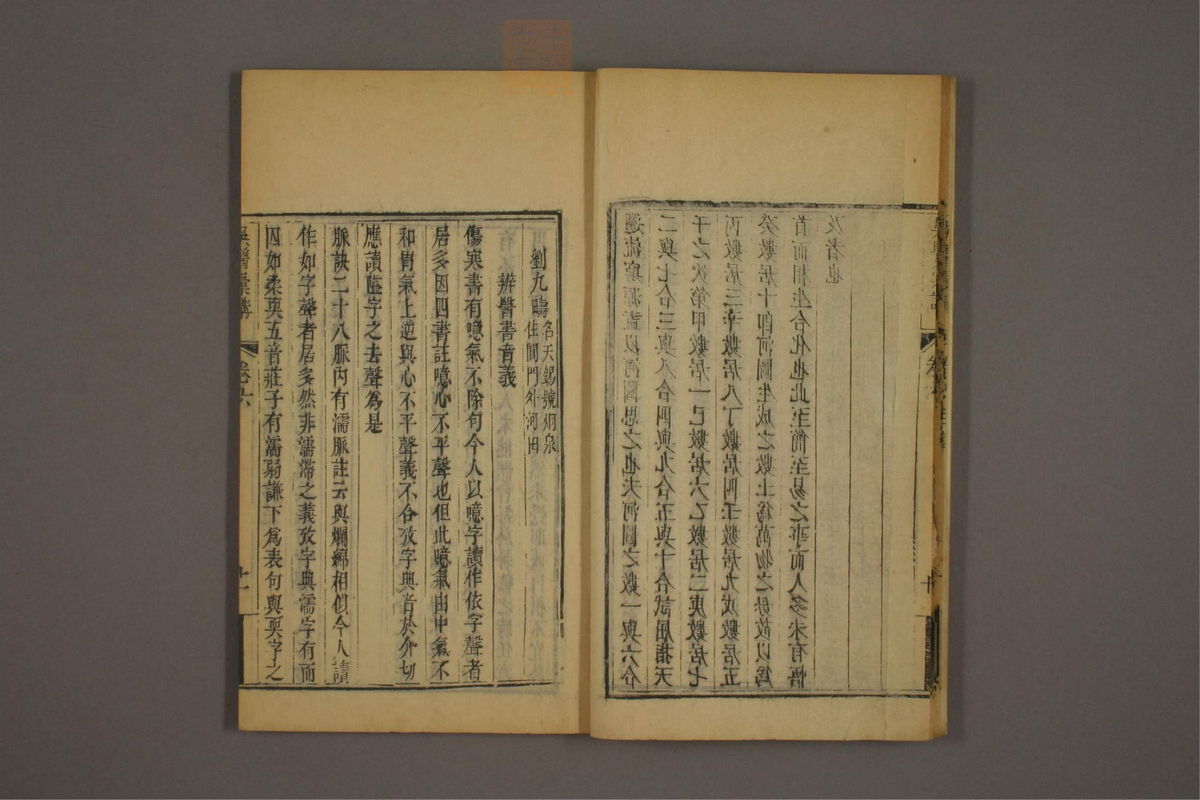 遡流窮源請以河圖思之也夫河圖之數一與六合
二與七合三與八合四與九合五與十合試屈指天
干之次第甲數居一己數居六乙數居二庚數居七
丙數居三辛數居八丁數居四壬數居九戊數居五
癸數居十卽河圖生成之數土爲萬物之母故以爲
首而相生合化也此至簡至易之事而人多未有悟
及者也
劉九疇
名天錫號烱泉
住閶門外河田
辨醫書音義
傷寒書有噫氣不除句今人以噫字讀作依字聲者
居多因四書註噫心不平聲也但此噫氣由中氣不
和胃氣上逆與心不平聲義不合攷字典音於介切
應讀隘字之去聲為是
脈訣二十八脈內有濡脈註云與爛綿相似今人讀
作如字聲者居多然非濡滯之義攷字典濡字有而
因如柔耎五音莊子有濡弱謙下為表句與耎字之
吳醫彙講
卷六
十一